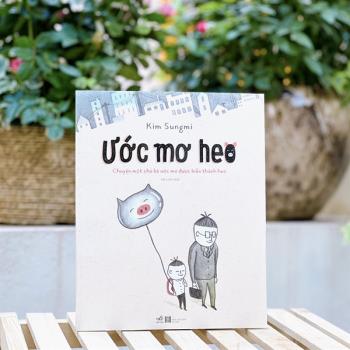 Kim Sungmi
ƯỚC mơ heo
Chuyện một chú bé ước mơ được biến thành heo